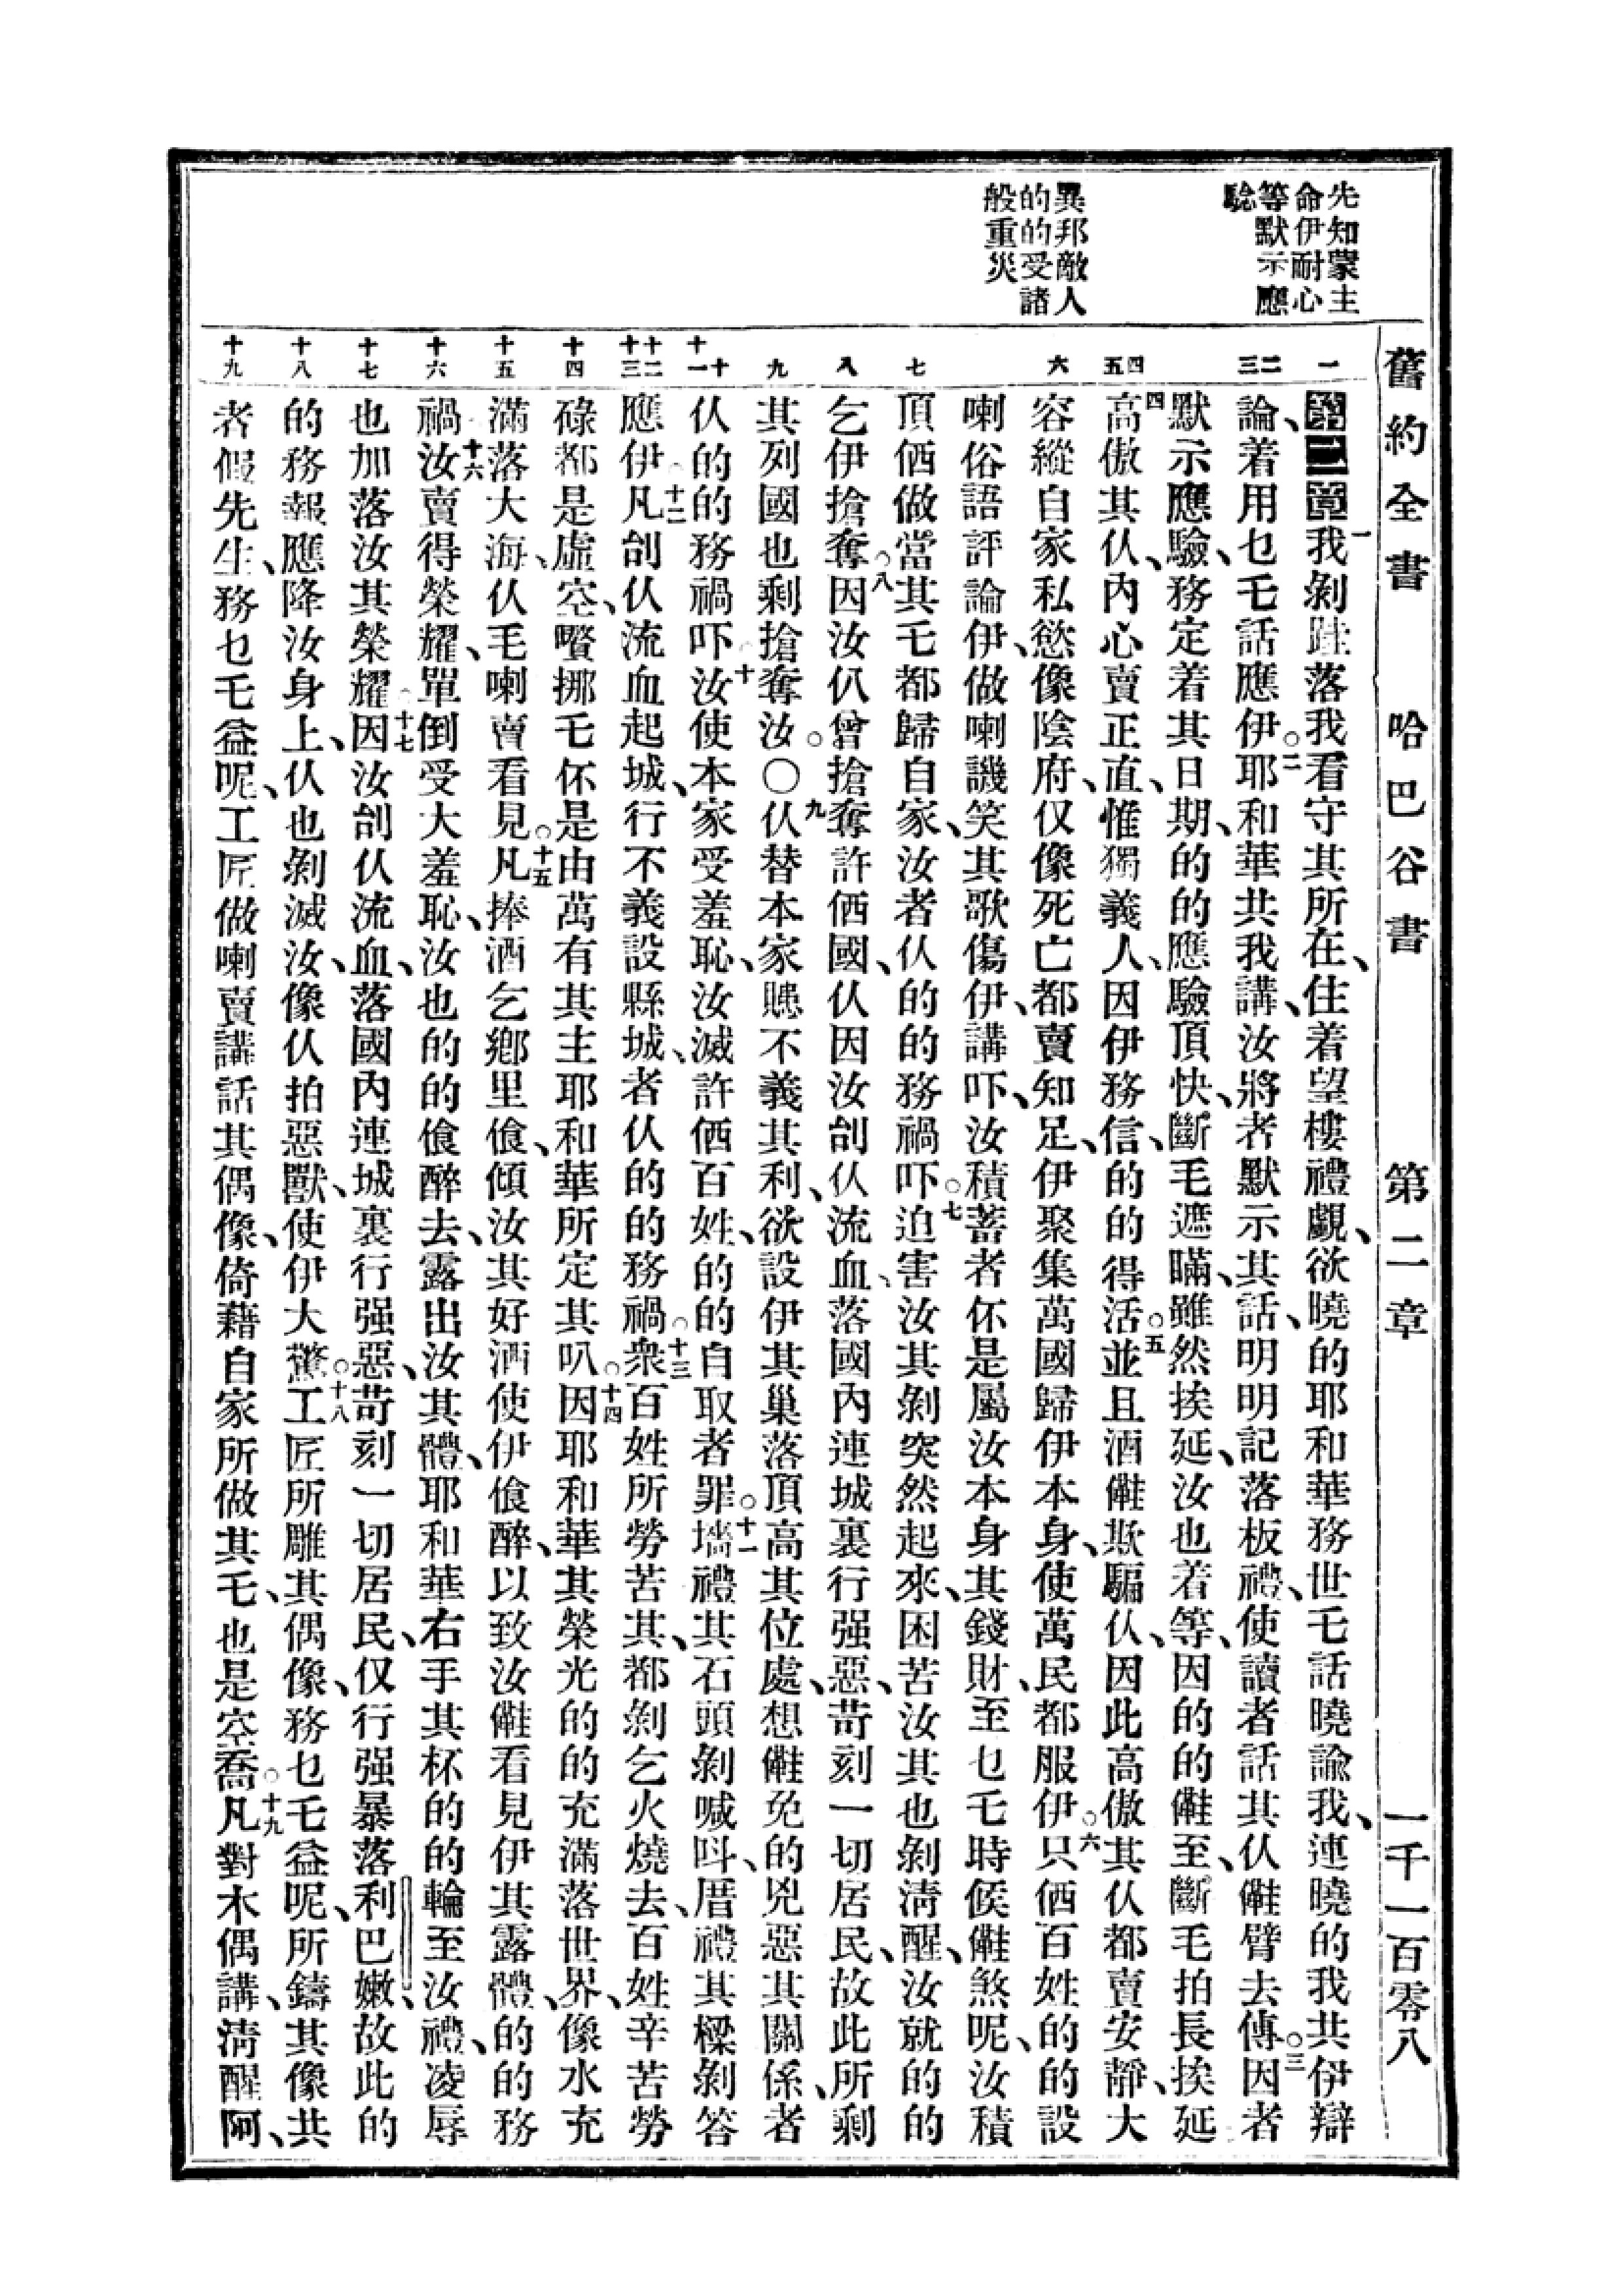 舊約全書 哈巴谷書 第二章 一千一百零八
先知蒙主
命伊耐心
等默示應
驗
異邦敵人
的的受諸
般重災
一
二
三
四
五
六
七
八
九
十
十一
十二
十三
十四
十五
十六
十七
十八
十九
第二章一我剝跬落我看守其所在、住着望樓禮覷、欲曉的耶和華務世乇話曉諭我、連曉的我共伊辯
論、着用乜乇話應伊○二耶和華共我講、汝將者默示其話、明明記落板禮、使讀者話其仈儺臂去傳○三因者
默示應驗、務定着其日期、的的應驗頂快、斷毛遮瞞、雖然挨延、汝也着等、因的的儺至、斷毛拍長挨延
四高傲其仈、內心賣正直、惟獨義人、因伊務信、的的得活○五並且酒儺欺騙仈、因此高傲其仈都賣安靜、大
容縱自家私慾像陰府、仅像死亡都賣知足、伊聚集萬國歸伊本身、使萬民都服伊○六只倕百姓的的設
喇俗語評論伊、做喇譏笑其歌傷伊、講吓、汝積蓄者伓是屬汝本身其錢財、至乜乇時候儺煞呢、汝積
頂倕做當其乇都歸自家、汝者仈的的務禍吓○七迫害汝其剝突然起來、困苦汝其也剝淸醒、汝就的的
乞伊搶奪○八因汝仈曾搶奪許倕國、仈因汝刣仈流血、落國內連城裏行强惡、苛刻一切居民、故此所剩
其列國也剩搶奪汝○〇九仈替本家賺不義其利、欲設伊其巢落頂高其位處、想儺免的兇惡其關係、者
仈的的務禍吓○十汝使本家受羞恥、汝滅許倕百姓、的的自取者罪○十一墻禮其石頭剝喊呌、厝禮其樑剝答
應伊○十二凡刣仈流血起城、行不義設縣城、者仈的的務禍○十三衆百姓所勞苦其、都剝乞火燒去、百姓辛苦勞
碌都是虛空、嚽挪毛伓是由萬有其主耶和華所定其叭○十四因耶和華其榮光的的充滿落世界、像水充
滿落大海、仈毛喇賣看見○十五凡捧酒乞鄉里飡、傾汝其好酒使伊飡醉、以致汝儺看見伊其露體、的的務
禍○十六汝賣得榮耀、單倒受大羞恥、汝也的的飡醉去、露出汝其體、耶和華右手其杯的的輪至汝禮、凌辱
也加落汝其榮耀○十七因汝刣仈流血、落國內連城裏行强惡、苛刻一切居民、仅行强暴落利巴嫩、故此的
的務報應降汝身上、仈也剝滅汝、像仈拍惡獸、使伊大驚○十八工匠所雕其偶像、務乜乇益呢、所鑄其像共
者假先生、務乜乇益呢、工匠做喇賣講話其偶像、倚藉自家所做其乇、也是空喬○十九凡對木偶講、淸醒阿、